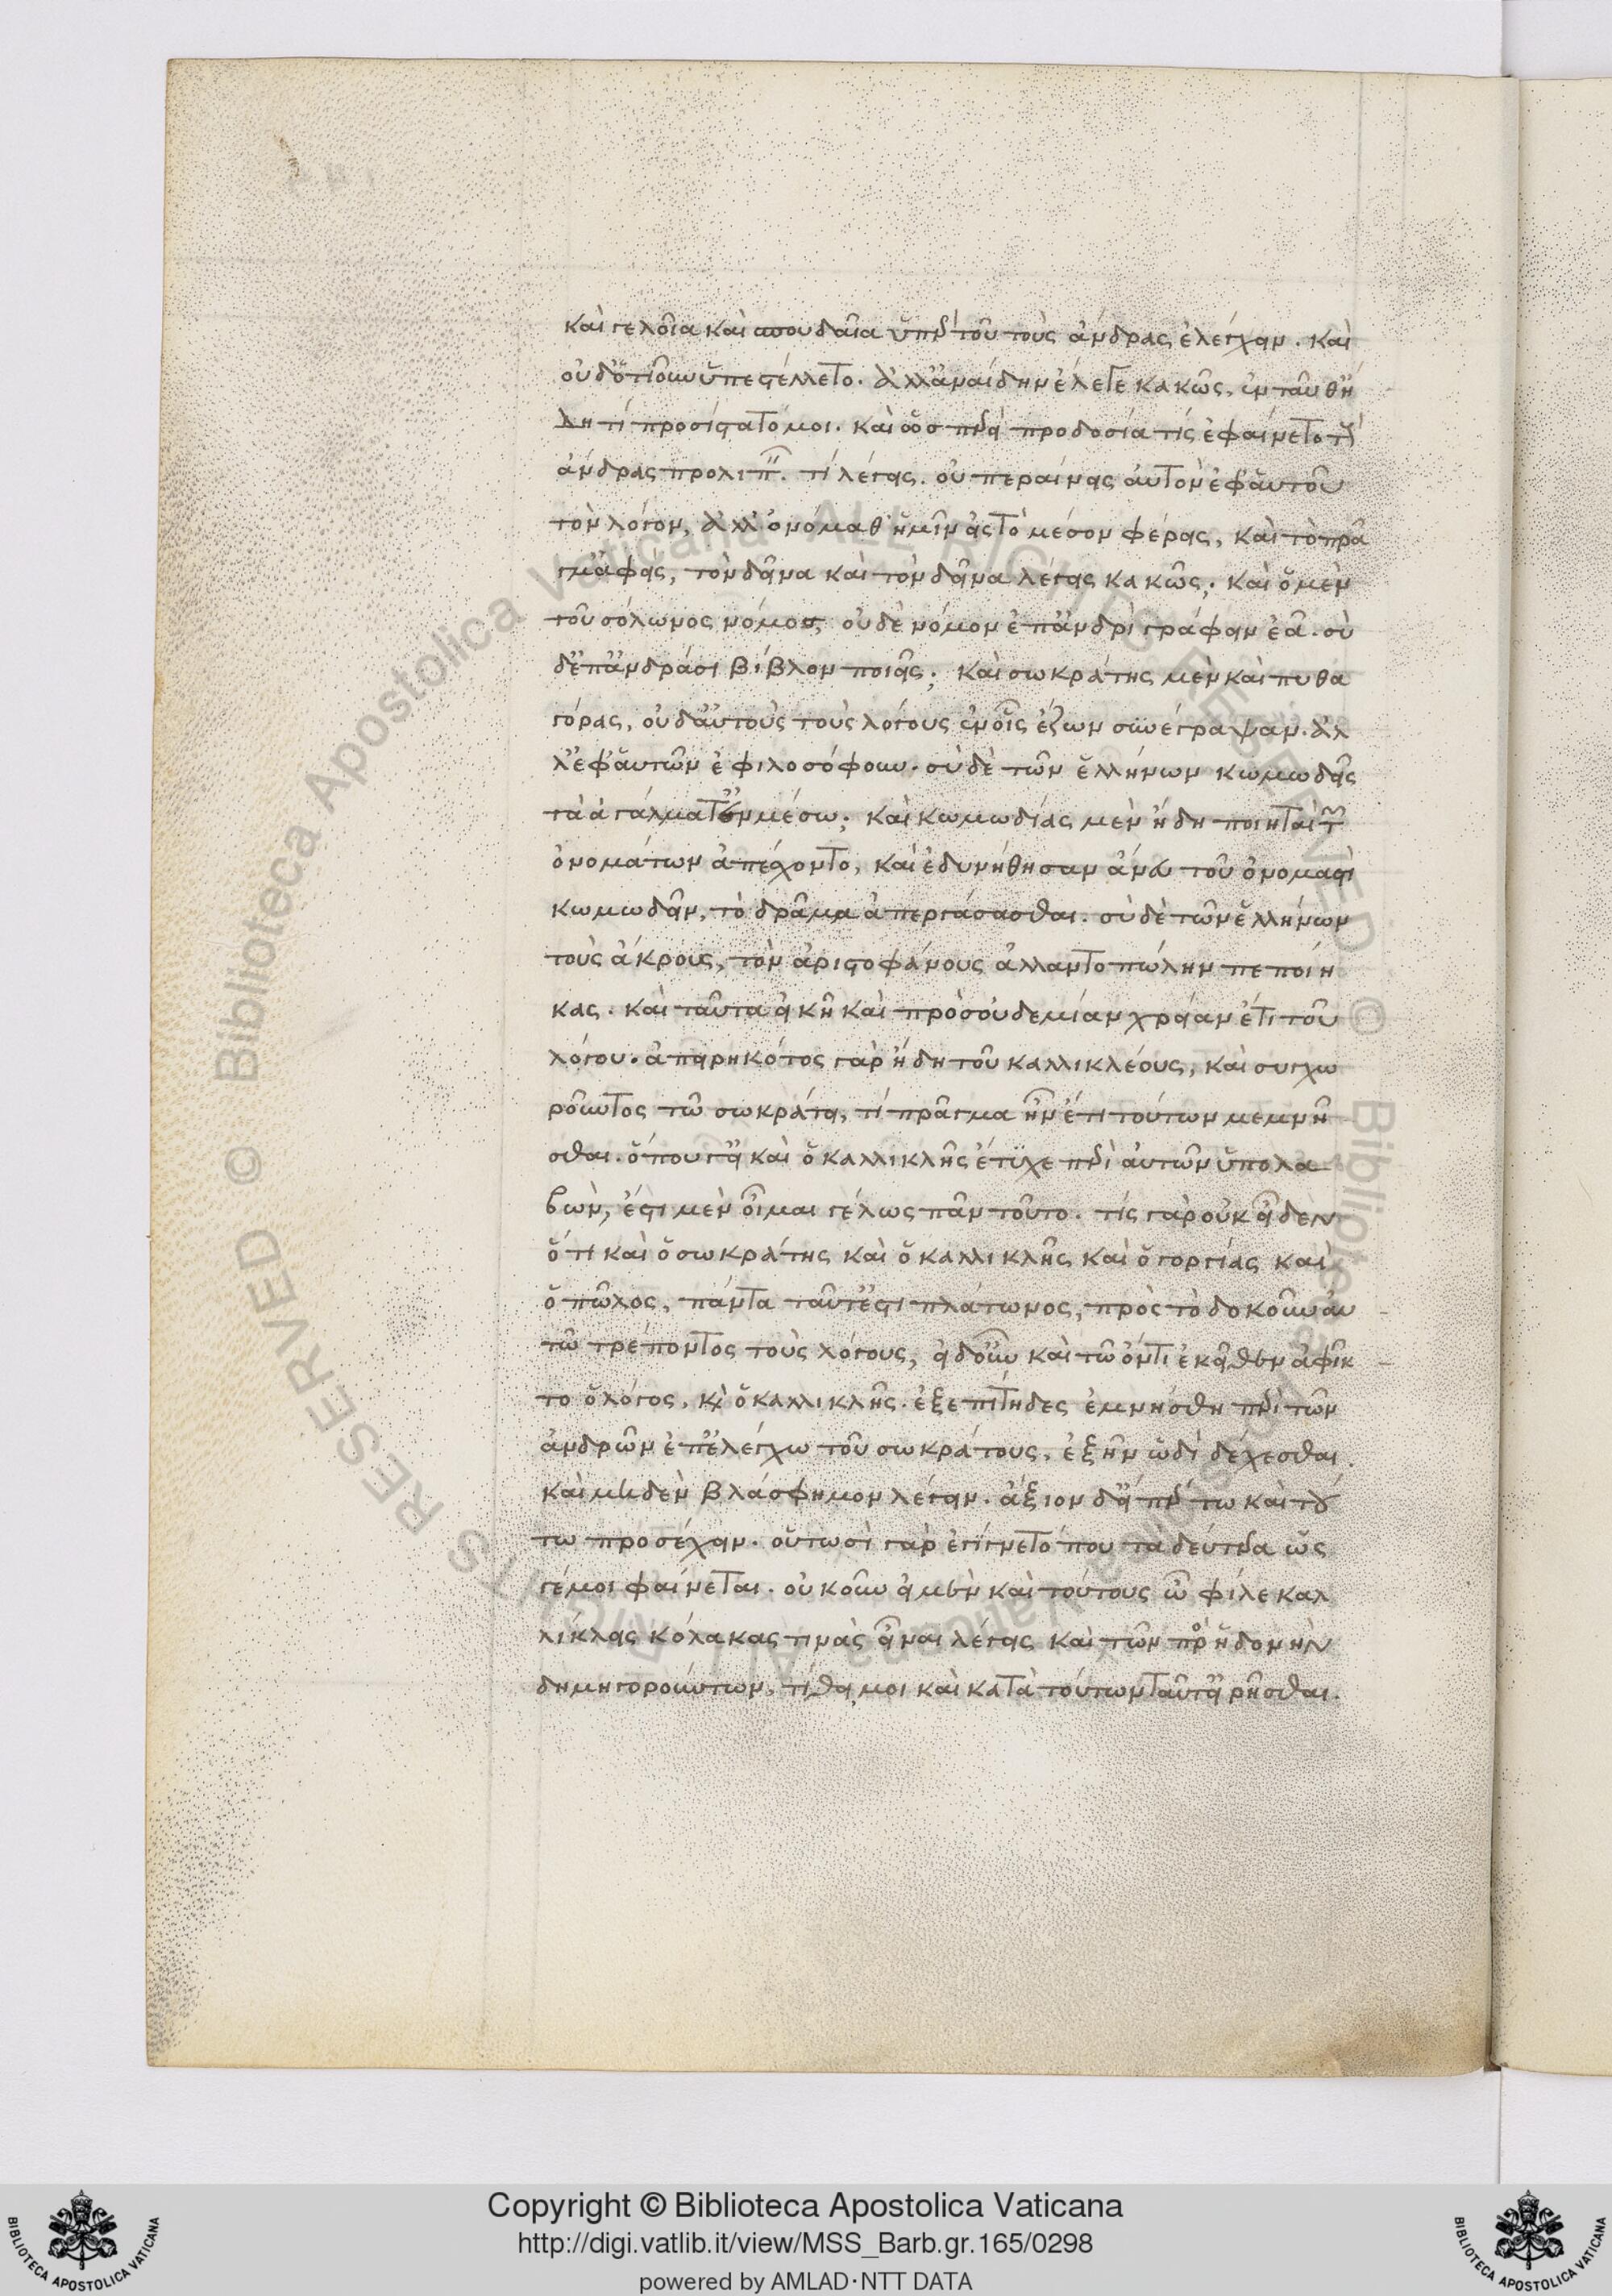 καὶ γελοῖα καὶ σπουδαῖα ὑπὲρ τοῦ τοὺς ἄνδρας ἐλέγχειν. καὶ
οὐδ' ὁτιοῦν ὑπεστέλλετο. ἀλλ' ἀναίδην ἔλεγε κακῶς. ἐνταῦθ' ἤ
δη τί προσίστατό μοι. καὶ ὥσπερεὶ προδοσία τίς ἐφαίνετο τοὺς
ἄνδρας προλιπεῖν. τί λέγεις. οὐ περαίνεις αὐτὸν ἐφ' αὑτοῦ
τὸν λόγον, ἀλλ' ὀνόμαθ' ἡμῖν εἰς τὸ μέσον φέρεις, καὶ τὸ πρᾶ
γμ' ἀφεὶς, τὸν δεῖνα καὶ τὸν δεῖνα λέγεις κακῶς; καὶ ὁ μὲν
τοῦ σόλωνος νόμος, οὐδὲ νόμον ἐπ' ἀνδρὶ γράφειν ἐᾶ. σὺ
δ' ἐπ' ἀνδράσι βίβλον ποιεῖς; καὶ σωκράτης μὲν καὶ πυθα
γόρας, οὐδ' αὐτοὺς τοὺς λόγους ἐν οἷς ἔζων συνέγραψαν. ἀλ
λ' ἐφ' αὑτῶν ἐφιλοσόφουν. σὺ δὲ τῶν ἑλλήνων κωμωδεῖς
τὰ ἀγάλματ' ἐν μέσω; καὶ κωμωδίας μὲν ἤδη ποιηταὶ τῶν
ὀνομάτων ἀπέσχοντο, καὶ ἐδυνήθησαν ἄνευ τοῦ ὀνομαστὶ
κωμωδεῖν, τὸ δρᾶμα ἀπεργάσασθαι. σὺ δὲ τῶν ἑλλήνων
τοὺς ἄκρους, τὸν ἀριστοφάνους ἀλλαντοπώλην πεποίη
κας. καὶ ταῦτα εἰκῆ καὶ πρὸς οὐδεμίαν χρείαν ἔτι τοῦ
λόγου. ἀπειρηκότος γὰρ ἤδη τοῦ καλλικλέους, καὶ συγχω
ροῦντος τῶ σωκράτει, τί πρᾶγμα ἦν ἔτι τούτων μεμνῆ
σθαι. ὅπου γ' εἰ καὶ ὁ καλλικλῆς ἔτυχε περὶ αὐτῶν ὑπολα
βὼν, ἔστι μὲν οἶμαι γέλως πᾶν τοῦτο. τίς γὰρ οὐκ οἶδεν
ὅτι καὶ ὁ σωκράτης καὶ ὁ καλλικλῆς καὶ ὁ γοργίας καὶ
ὁ πῶλος, πάντα ταῦτ' ἐστὶ πλάτωνος, πρὸς τὸ δοκοῦν αὑ
τῶ τρέποντος τοὺς λόγους, εἰ δ' οὖν καὶ τῶ ὄντι ἐκεῖθεν ἀφῖκ
το ὁ λόγος, καὶ ὁ καλλικλῆς. ἐξεπίτηδες ἐμνήσθη περὶ τῶν
ἀνδρῶν ἐπ' ἐλέγχω τοῦ σωκράτους, ἐξῆν ὡδὶ δέχεσθαι.
καὶ μηδὲν βλάσφημον λέγειν. ἄξιον δ' εἴπερ τω καὶ τού
τω προσέχειν. οὑτωσὶ γὰρ ἐγίγνετό που τὰ δεύτερα ὥς
γ' ἐμοὶ φαίνεται. οὐκοῦν εἰ μὲν καὶ τούτους ὦ φίλε καλ
λίκλεις κόλακας τινὰς εἶναι λέγεις καὶ τῶν πρὸς ἡδονὴν
δημηγορούντων, τίθει μοι καὶ κατὰ τούτων ταῦτ' εἰρῆσθαι.
Copyright © Biblioteca Apostolica Vaticana
http://digi.vatlib.it/view/MSS_Barb.gr.165/0298
powered by AMLAD·NTT DATA